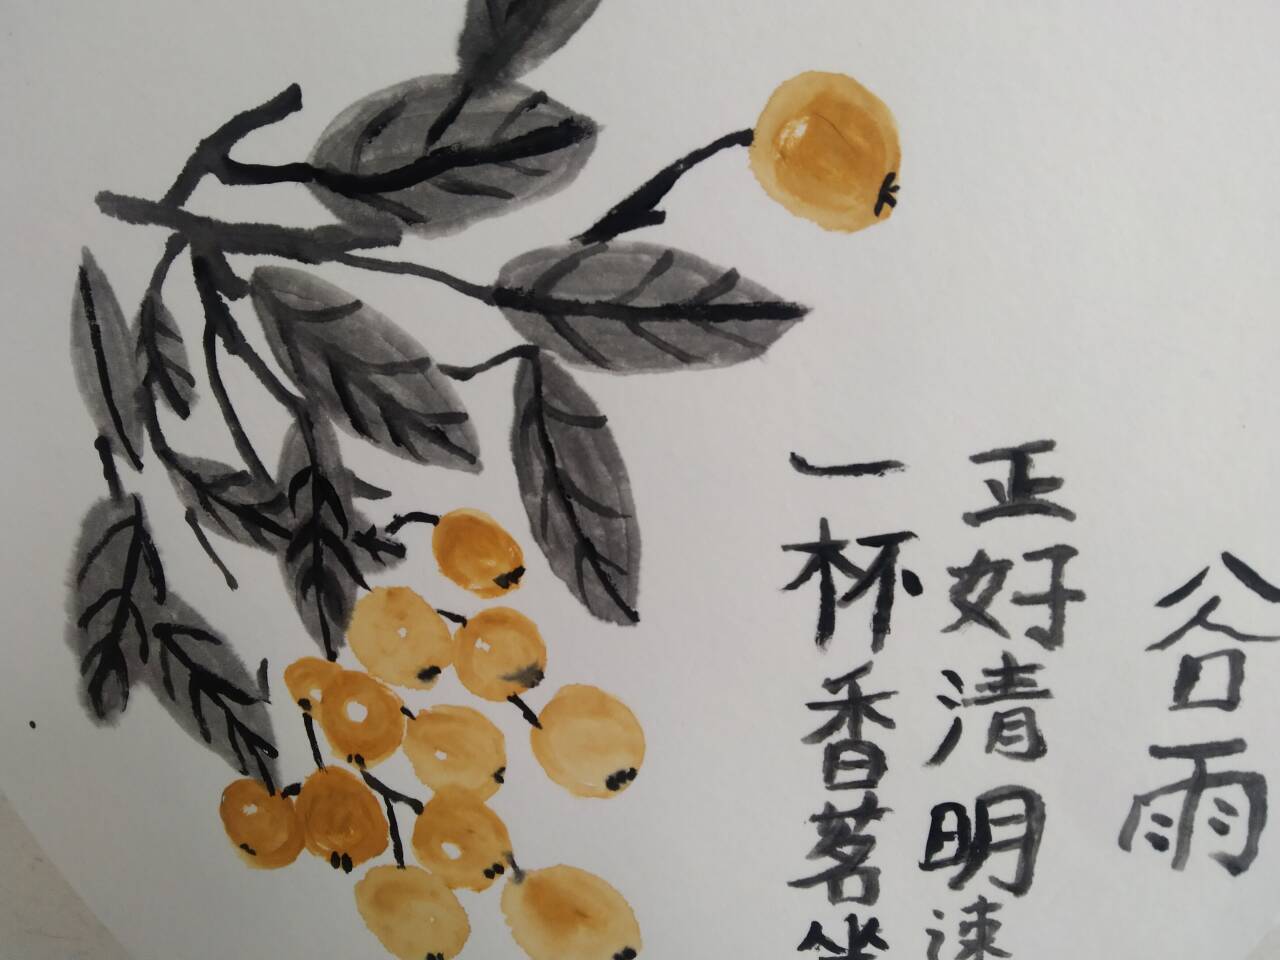 谷雨
正好清明
一杯香茗坐